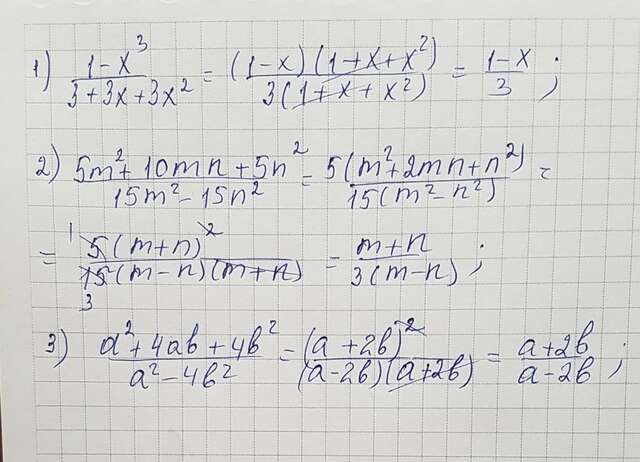 1) (1-x³)/(3+3x+3x²) = ((1-x)(1+x+x²))/(3(1+x+x²)) = (1-x)/3 ;
2) (5m²+10mn+5n²)/(15m²-15n²) = (5(m²+2mn+n²))/(15(m²-n²)) =
= (5(m+n)²)/(15(m-n)(m+n)) = (m+n)/(3(m-n)) ;
3) (a²+4ab+4b²)/(a²-4b²) = (a+2b)²/((a-2b)(a+2b)) = (a+2b)/(a-2b) ;